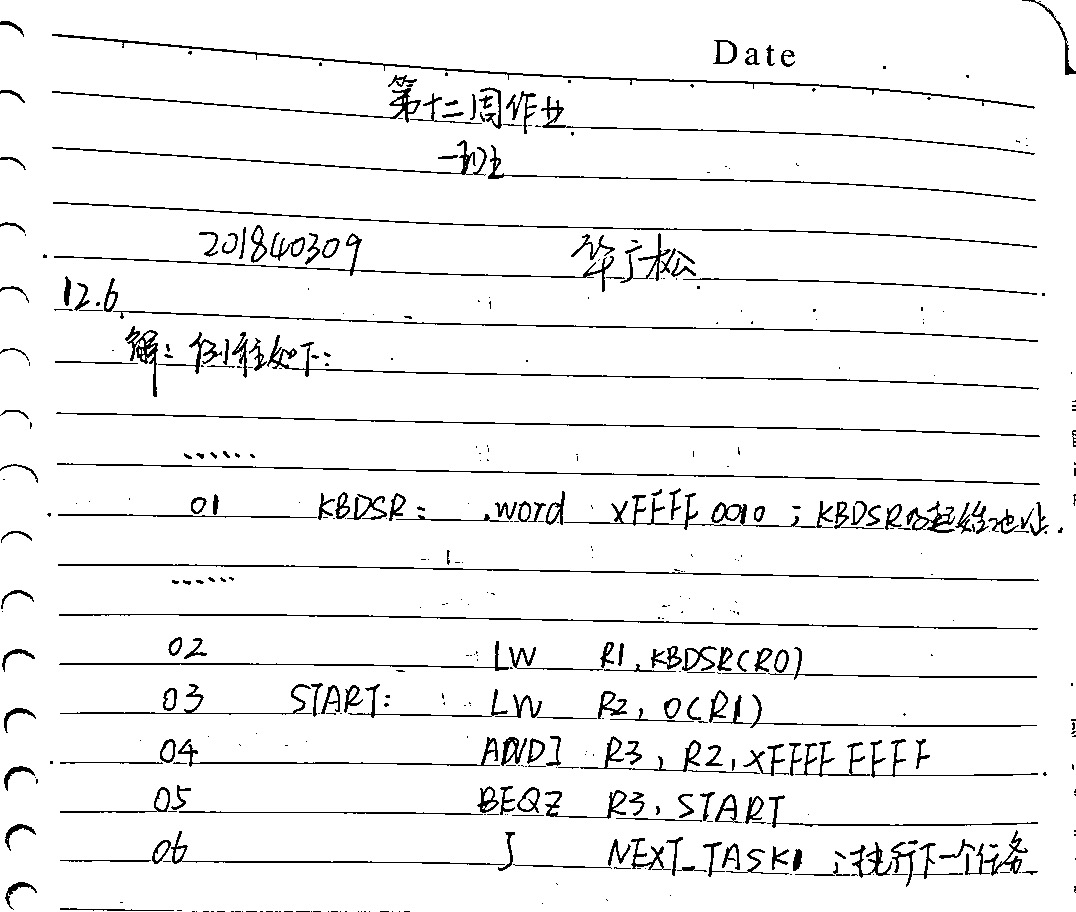 Date
第十二周作业
一班
201840309 华广松
12.6
解: 例程如下:
......
01 KBDSR: .word xFFFF 0010 ; KBDSR的起始地址.
......
02 LW R1, KBDSR(R0)
03 START: LW R2, 0(R1)
04 ANDI R3, R2, xFFFF FFFF
05 BEQZ R3, START
06 J NEXT_TASK1 ;执行下一个任务